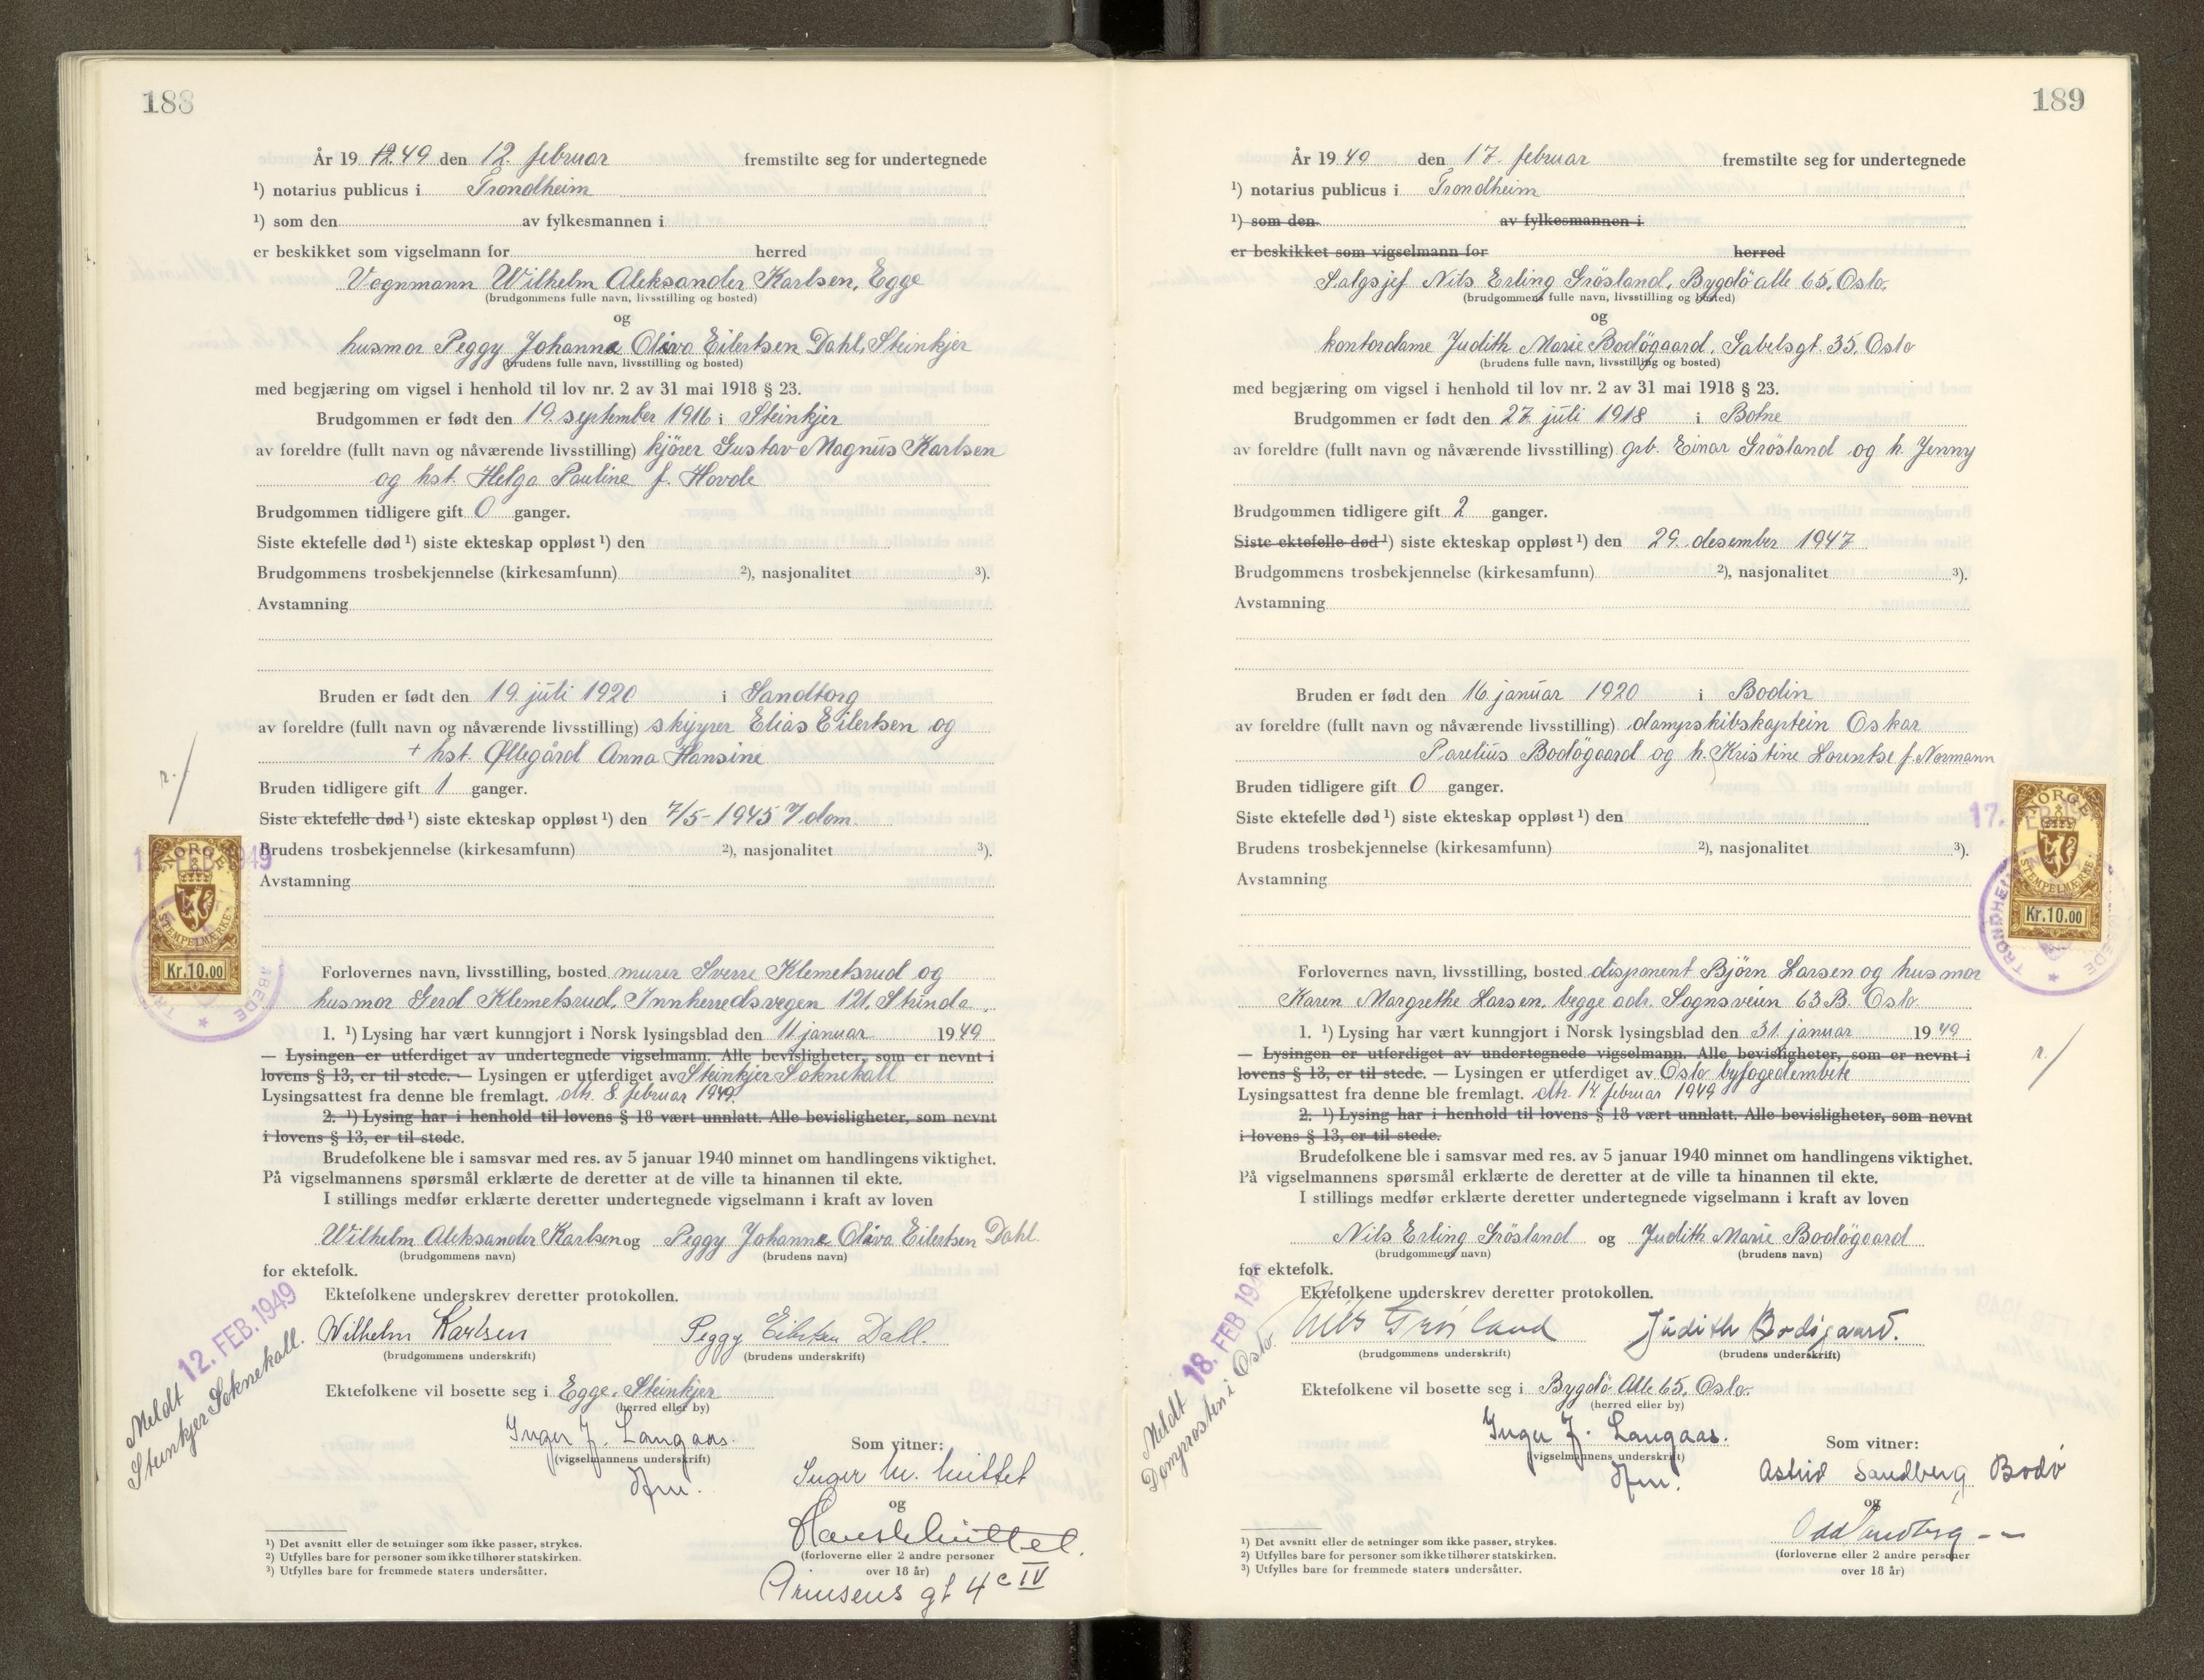 188
År 19 49 den 12. februar fremstilte seg for undertegnede
¹) notarius publicus i Trondheim
¹) som den av fylkesmannen i
er beskikket som vigselmann for herred
Vognmann Wilhelm Aleksander Karlsen, Egge
(brudgommens fulle navn, livsstilling og bosted)
og
husmor Peggy Johanne Oliva Eilertsen Dahl, Steinkjer
(brudens fulle navn, livsstilling og bosted)
med begjæring om vigsel i henhold til lov nr. 2 av 31 mai 1918 § 23.
Brudgommen er født den 19. september 1916 i Steinkjer
av foreldre (fullt navn og nåværende livsstilling) kjörer Gustav Magnus Karlsen
og hst. Helga Pauline f. Hovde
Brudgommen tidligere gift 0 ganger.
Siste ektefelle død ¹) siste ekteskap oppløst ¹) den
Brudgommens trosbekjennelse (kirkesamfunn) ²), nasjonalitet ³).
Avstamning
Bruden er født den 19. juli 1920 i Sandtorg
av foreldre (fullt navn og nåværende livsstilling) skipper Elias Eilertsen og
+ hst. Øllegård Anna Hansine
Bruden tidligere gift 1 ganger.
Siste ektefelle død ¹) siste ekteskap oppløst ¹) den 7/5-1945 v/dom.
Brudens trosbekjennelse (kirkesamfunn) ²), nasjonalitet ³).
Avstamning
r./
FEB 1949
NORGE
STEMPELMERKE
Kr.10.00
Forlovernes navn, livsstilling, bosted murer Sverre Klemetsrud og
husmor Gerd Klemetsrud, Innherredsvegen 121, Strinda.
1. ¹) Lysing har vært kunngjort i Norsk lysingsblad den 11 januar 1949
— Lysingen er utferdiget av undertegnede vigselmann. Alle bevisligheter, som er nevnt i
lovens § 13, er til stede. — Lysingen er utferdiget av Steinkjer Soknekall
Lysingsattest fra denne ble fremlagt. dtr. 8. februar 1949.
2. ¹) Lysing har i henhold til lovens § 18 vært unnlatt. Alle bevisligheter, som nevnt
i lovens § 13, er til stede.
Brudefolkene ble i samsvar med res. av 5 januar 1940 minnet om handlingens viktighet.
På vigselmannens spørsmål erklærte de deretter at de ville ta hinannen til ekte.
I stillings medfør erklærte deretter undertegnede vigselmann i kraft av loven
Wilhelm Aleksander Karlsen og Peggy Johanne Oliva Eilertsen Dahl.
(brudgommens navn) (brudens navn)
for ektefolk.
Ektefolkene underskrev deretter protokollen.
Wilhelm Karlsen Peggy Eilertsen Dahl.
(brudgommens underskrift) (brudens underskrift)
Meldt 12. FEB. 1949
Steinkjer Soknekall.
Ektefolkene vil bosette seg i Egge, Steinkjer
(herred eller by)
Inger J. Langaas.
(vigselmannens underskrift)
Som vitner:
og
(forloverne eller 2 andre personer
over 18 år)
Prinsens gt 4 c IV
¹) Det avsnitt eller de setninger som ikke passer, strykes.
²) Utfylles bare for personer som ikke tilhører statskirken.
³) Utfylles bare for fremmede staters undersåtter.
189
År 19 49 den 17. februar fremstilte seg for undertegnede
¹) notarius publicus i Trondheim
¹) som den av fylkesmannen i
er beskikket som vigselmann for herred
Salgsjef Nils Erling Grösland, Bygdö alle 65, Oslo.
(brudgommens fulle navn, livsstilling og bosted)
og
kontordame Judith Marie Bodögaard, Gabelsgt. 35, Oslo
(brudens fulle navn, livsstilling og bosted)
med begjæring om vigsel i henhold til lov nr. 2 av 31 mai 1918 § 23.
Brudgommen er født den 27 juli 1918 i Botne
av foreldre (fullt navn og nåværende livsstilling) grb. Einar Grösland og h. Jenny
Brudgommen tidligere gift 2 ganger.
Siste ektefelle død ¹) siste ekteskap oppløst ¹) den 29. desember 1947
Brudgommens trosbekjennelse (kirkesamfunn) ²), nasjonalitet ³).
Avstamning
Bruden er født den 16 januar 1920 i Bodin
av foreldre (fullt navn og nåværende livsstilling) dampskibskaptein Oskar
Parelius Bodögaard og h. Kristine Lorentse f. Normann
Bruden tidligere gift 0 ganger.
Siste ektefelle død ¹) siste ekteskap oppløst ¹) den
Brudens trosbekjennelse (kirkesamfunn) ²), nasjonalitet ³).
Avstamning
17.
NORGE
STEMPELMERKE
Kr.10.00
Forlovernes navn, livsstilling, bosted disponent Björn Larsen og husmor
Karen Margrethe Larsen, begge adr. Sognsveien 63 B. Oslo
1. ¹) Lysing har vært kunngjort i Norsk lysingsblad den 31. januar 1949
— Lysingen er utferdiget av undertegnede vigselmann. Alle bevisligheter, som er nevnt i
lovens § 13, er til stede. — Lysingen er utferdiget av Oslo byfogedembete
Lysingsattest fra denne ble fremlagt. dtr. 14. februar 1949
r./
2. ¹) Lysing har i henhold til lovens § 18 vært unnlatt. Alle bevisligheter, som nevnt
i lovens § 13, er til stede.
Brudefolkene ble i samsvar med res. av 5 januar 1940 minnet om handlingens viktighet.
På vigselmannens spørsmål erklærte de deretter at de ville ta hinannen til ekte.
I stillings medfør erklærte deretter undertegnede vigselmann i kraft av loven
Nils Erling Grösland og Judith Marie Bodögaard
(brudgommens navn) (brudens navn)
for ektefolk.
Ektefolkene underskrev deretter protokollen.
Nils Grösland Judith Bodögaard.
(brudgommens underskrift) (brudens underskrift)
Meldt 18. FEB 1949
Domprosten i Oslo.
Ektefolkene vil bosette seg i Bygdö Alle 65, Oslo.
(herred eller by)
Inger J. Langaas.
(vigselmannens underskrift)
Som vitner:
Astrid Sandberg Bodö
og
Odd Sandberg - -
(forloverne eller 2 andre personer
over 18 år)
¹) Det avsnitt eller de setninger som ikke passer, strykes.
²) Utfylles bare for personer som ikke tilhører statskirken.
³) Utfylles bare for fremmede staters undersåtter.